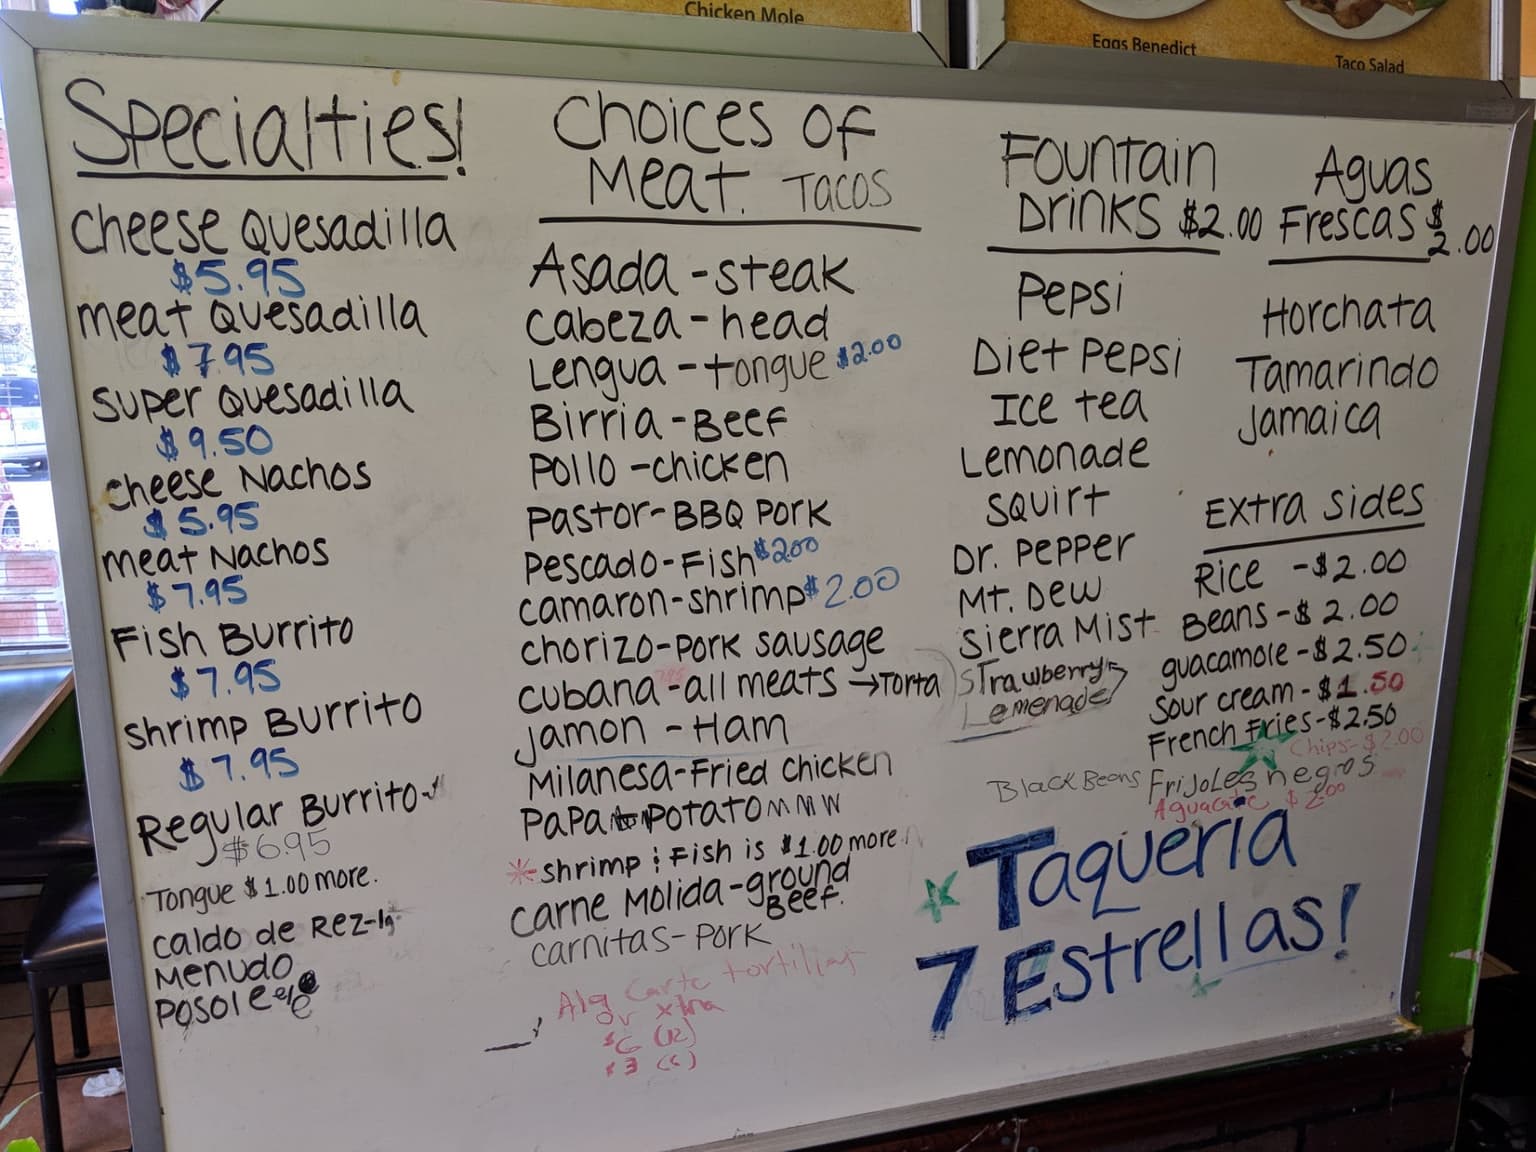 Chicken Mole
Eggs Benedict
Taco Salad
Specialties!
Cheese Quesadilla
$5.95
meat Quesadilla
$7.95
Super Quesadilla
$9.50
cheese Nachos
$5.95
meat Nachos
$7.95
Fish Burrito
$7.95
shrimp Burrito
$7.95
Regular Burrito
$6.95
Tongue $1.00 more.
caldo de Rez-lg
Menudo
Posole
Choices of
Meat. Tacos
Asada - steak
Cabeza - head
Lengua - tongue $2.00
Birria - Beef
Pollo - chicken
Pastor - BBQ Pork
Pescado - Fish $2.00
camaron - shrimp $2.00
chorizo - Pork sausage
cubana - all meats → Torta
Jamon - Ham
Milanesa - Fried chicken
Papa Potato
* shrimp & Fish is $1.00 more
carne Molida - ground
Beef.
carnitas - Pork
Ala Carte tortillas
or xtra
$6 (12)
$3 (6)
Fountain
Drinks $2.00
Pepsi
Diet Pepsi
Ice tea
Lemonade
Squirt
Dr. Pepper
Mt. Dew
Sierra Mist
Strawberry
Lemenade
Aguas
Frescas $2.00
Horchata
Tamarindo
Jamaica
Extra Sides
Rice - $2.00
Beans - $2.00
guacamole - $2.50
Sour cream - $1.50
French Fries - $2.50
Chips - $2.00
Black Beans Frijoles negros
Aguacate $2.00
Taqueria
7 Estrellas!